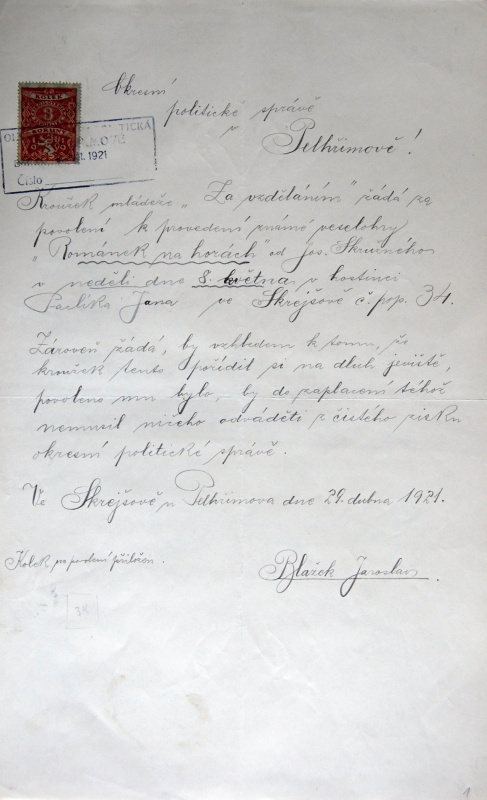 Okresní
politické správě
v
Pelhřimově!
KOLEK
3
KORUNY
1921
Číslo
Kroužek mládeže „Za vzděláním" žádá za
povolení k provedení známé veselohry
„Románek na horách" od Jos. Skružného
v neděli dne 8. května v hostinci
Pavlíka Jana ve Skrejšově č. pop. 34.
Zároveň žádá, by vzhledem k tomu, že
kroužek tento pořídil si na dluh jeviště,
povoleno mu bylo, by do zaplacení téhož
nemusil ničeho odváděti z čistého zisku
okresní politické správě.
Ve Skrejšově u Pelhřimova dne 29. dubna 1921.
Kolek pro povolení přiložen.
Blažek Jaroslav.
34
1